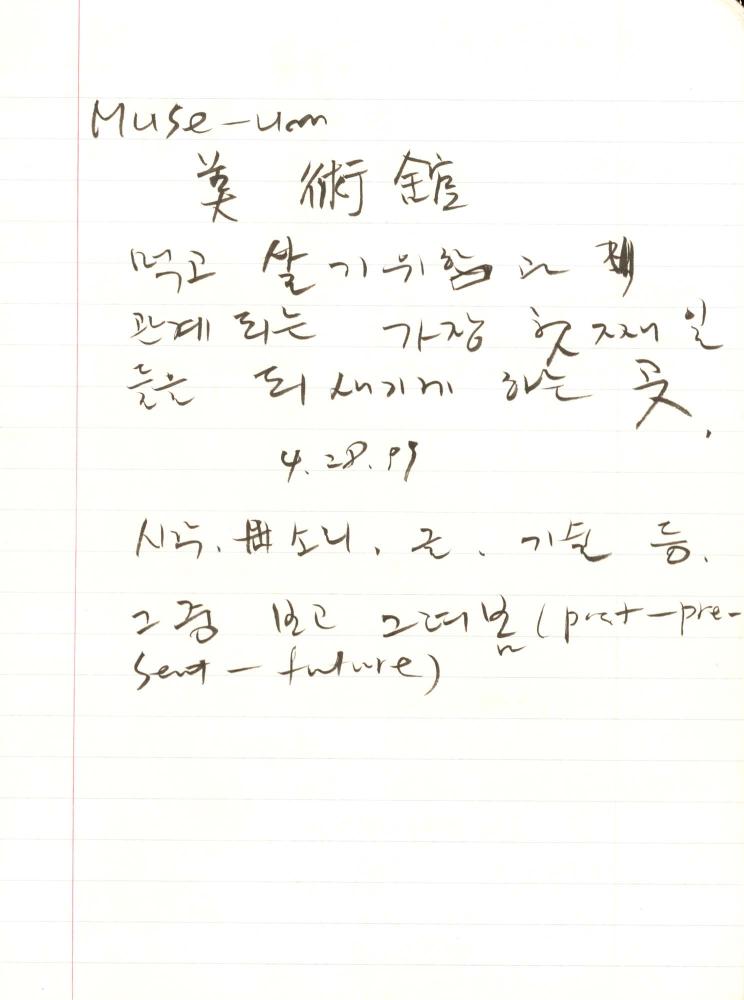 Muse-um
美術館
먹고 살기위함과
관계되는 가장 첫째 일
들을 되새기게 하는 곳.
4.28.99
시각. 소리. 글. 기술 등.
그냥 보고 그때 봄 (past-pre-
sent-future)